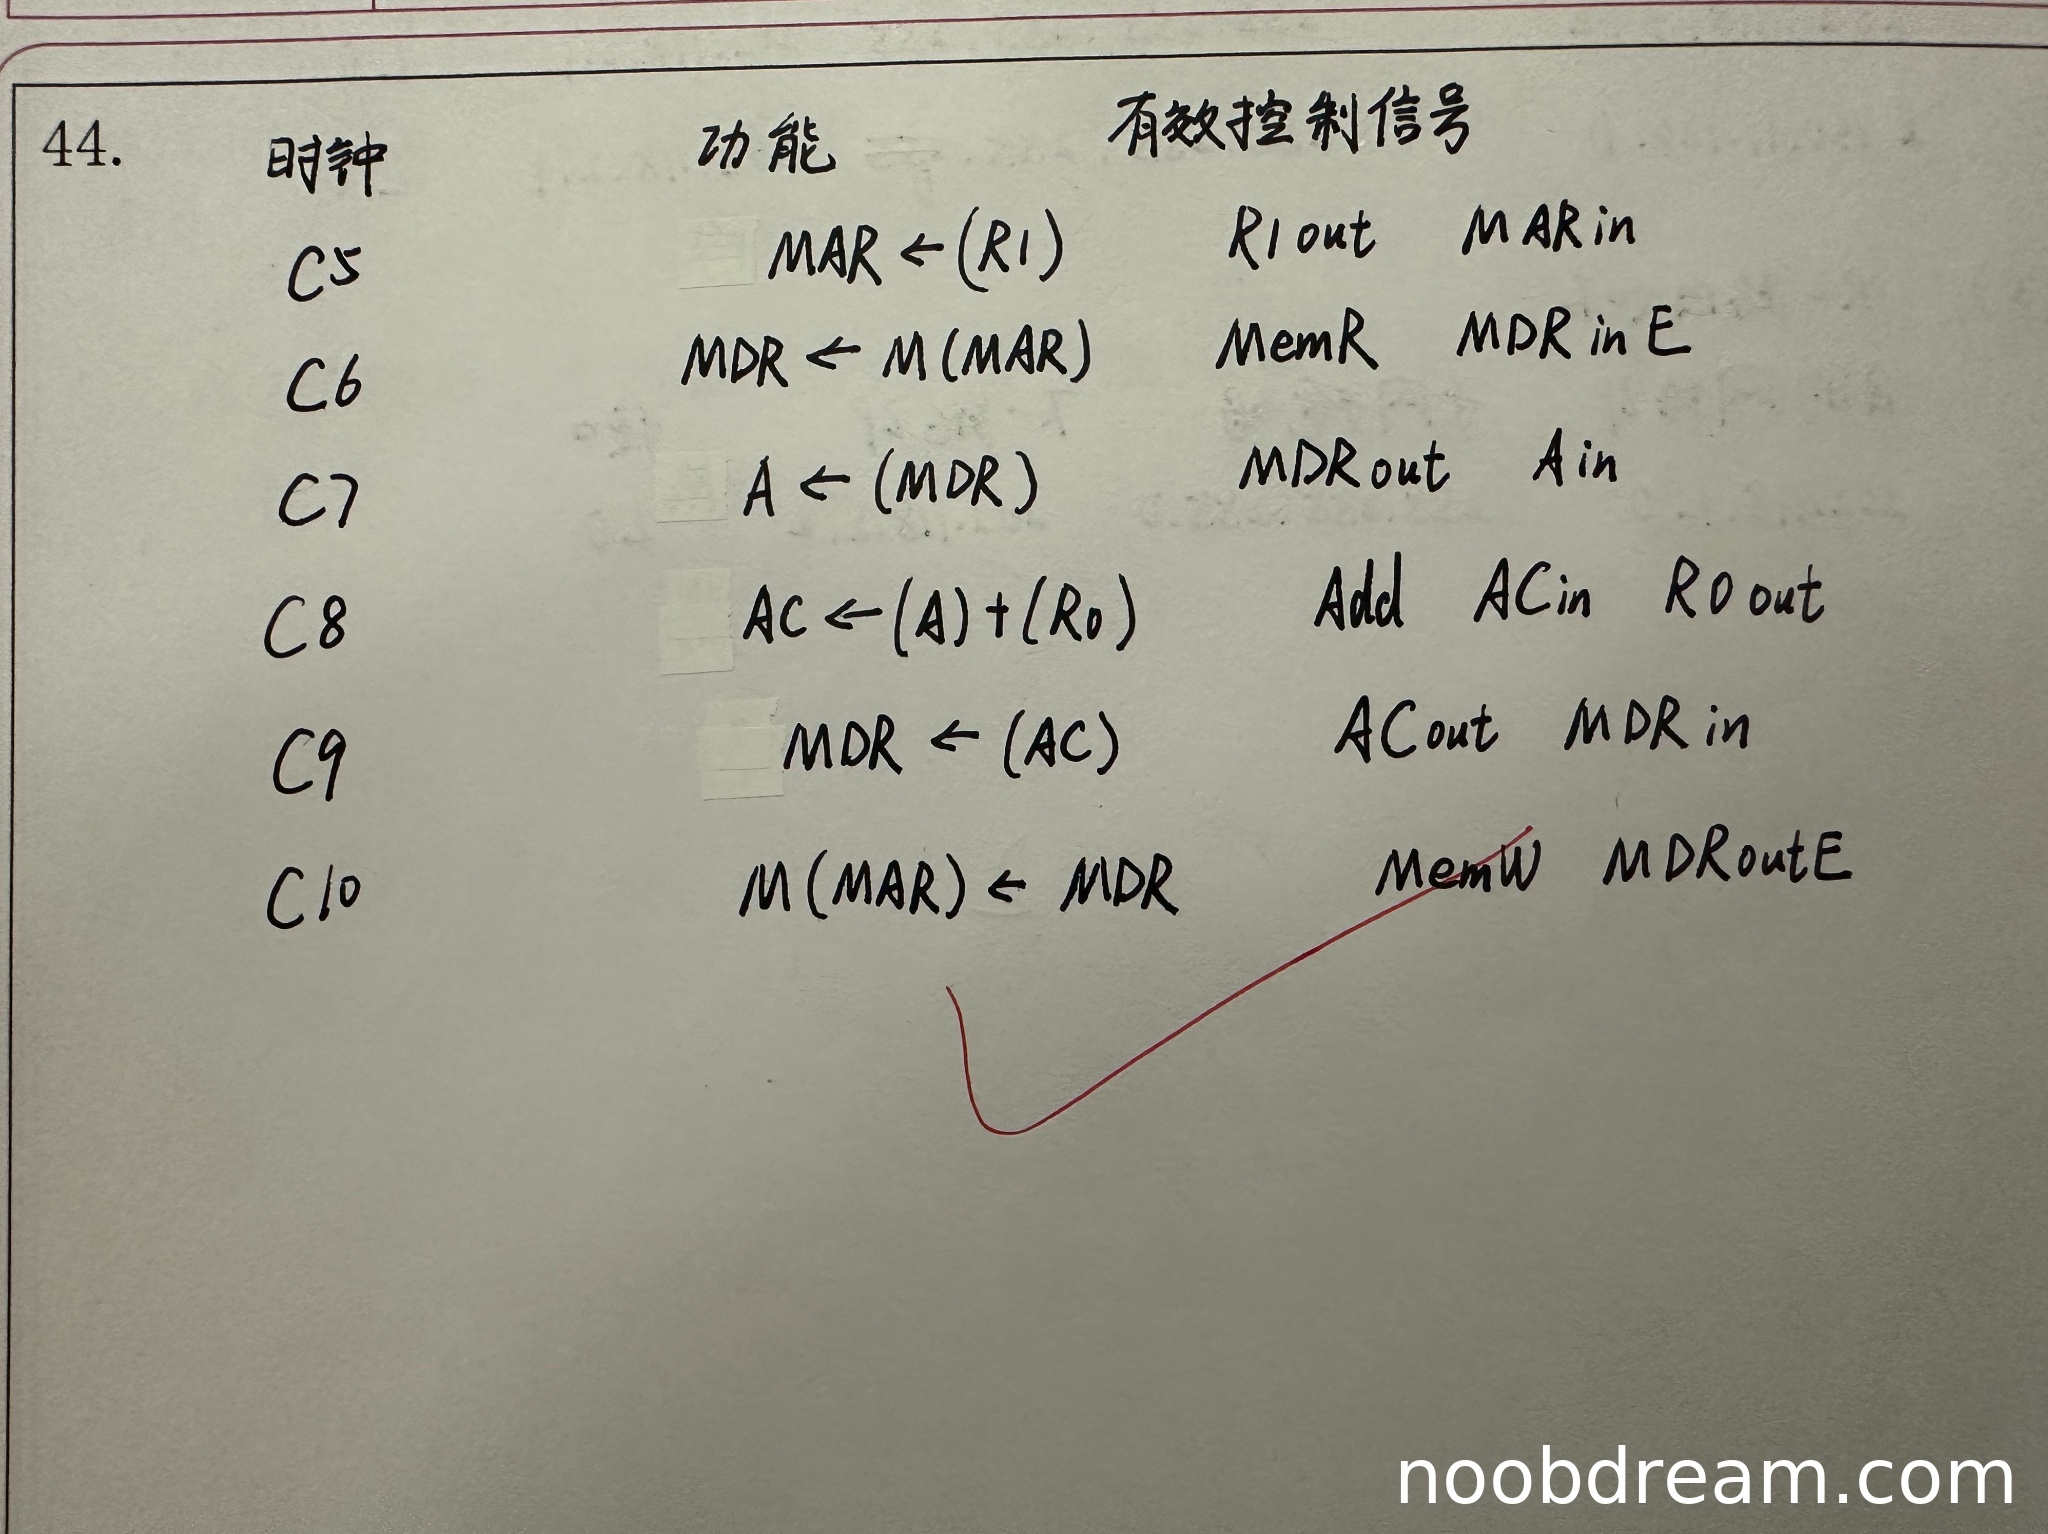 44. 时钟 功能 有效控制信号
C5 MAR ← (R1) R1out MARin
C6 MDR ← M(MAR) MemR MDRinE
C7 A ← (MDR) MDRout Ain
C8 AC ← (A)+(R0) Add ACin R0out
C9 MDR ← (AC) ACout MDRin
C10 M(MAR) ← MDR MemW MDRoutE
noobdream.com